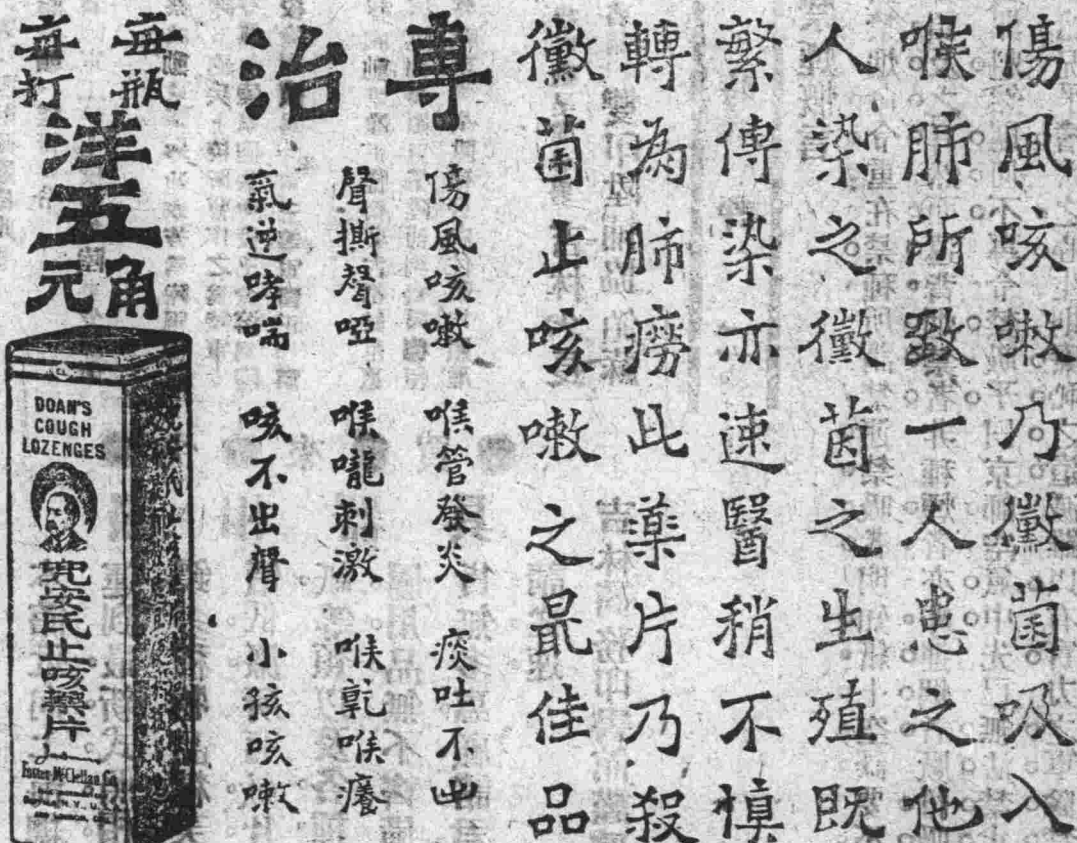 傷風咳嗽乃黴菌吸入
喉肺所致一人患之他
人染之黴菌之生殖既
繁傳染亦速醫稍不慎
轉為肺癆此藥片乃殺
黴菌止咳嗽之最佳品
專治
傷風咳嗽 喉管發炎 痰吐不出
聲撕聲啞 喉嚨刺激 喉乾喉癢
氣逆哮喘 咳不出聲 小孩咳嗽
每瓶洋五角
每打洋五元
DOAN'S
COUGH
LOZENGES
兜安氏止咳藥片
Foster-McClellan Co.
BUFFALO, N.Y., U.S.A.
AND LONDON, ENG.